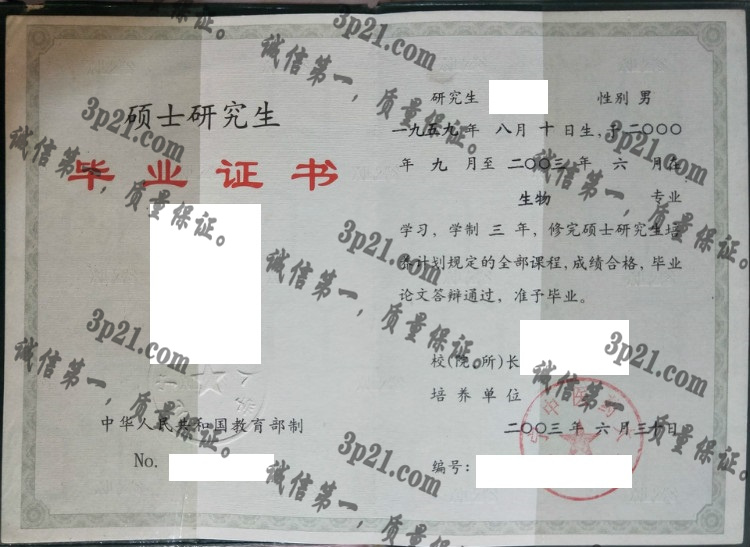 硕士研究生
毕业证书
中华人民共和国教育部制
No.
研究生 性别 男
一九五九 年 八 月 十 日生，于 二〇〇〇
年 九 月至 二〇〇三 年 六 月在
生物 专业
学习，学制 三 年，修完硕士研究生培
养计划规定的全部课程，成绩合格，毕业
论文答辩通过，准予毕业。
校(院、所)长
培养单位
二〇〇三 年 六 月三十日
编号：
3p21.com
诚信第一，质量保证。
3p21.com
诚信第一，质量保证。
3p21.com
诚信第一，质量保证。
3p21.com
诚信第一，质量保证。
3p21.com
诚信第一，质量保证。
3p21.com
诚信第一，质量保证。
3p21.com
诚信第一，质量保证。